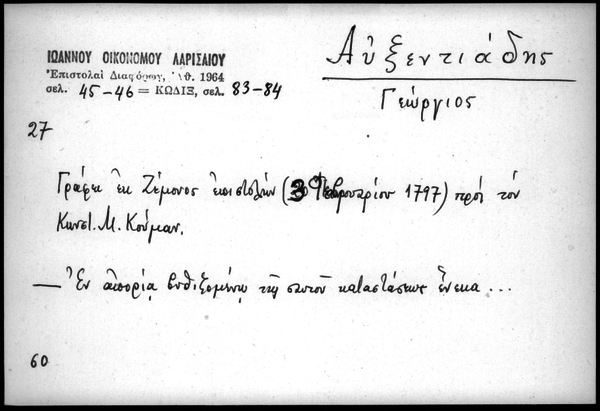 ΙΩΑΝΝΟΥ ΟΙΚΟΝΟΜΟΥ ΛΑΡΙΣΑΙΟΥ
Ἐπιστολαὶ Διαφόρων, Ἀθ. 1964
σελ. 45-46 = ΚΩΔΙΞ, σελ. 83-84
Αὐξεντιάδης
Γεώργιος
27
Γράφει ἐκ Ζέμονος ἐπιστολὴν (3 Φεβρουαρίου 1797) πρὸς τὸν
Κωνστ. Μ. Κούμαν.
— Ἐν ἀπορίᾳ βυθιζομένῳ τῆς σαυτοῦ καταστάσεως ἕνεκα ...
60